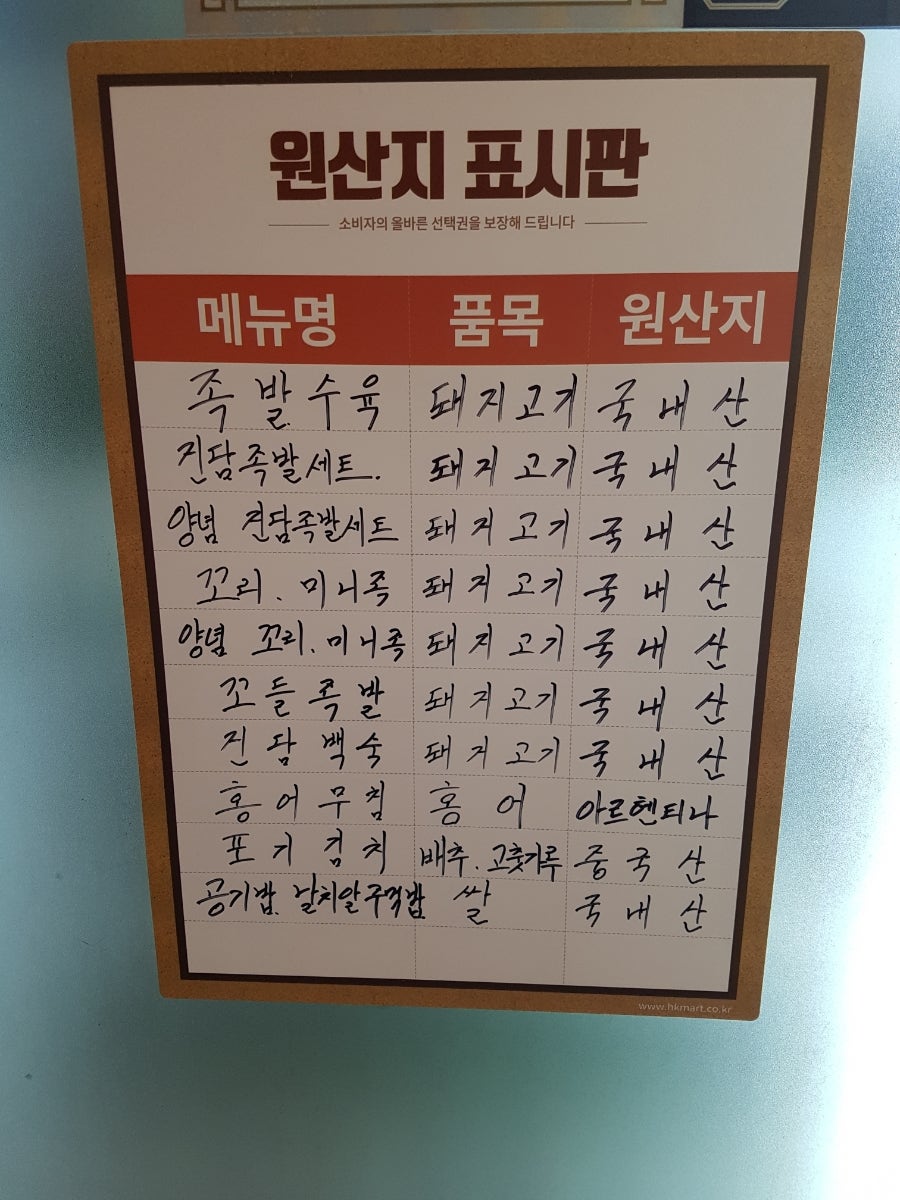 원산지 표시판
소비자의 올바른 선택권을 보장해 드립니다
메뉴명 품목 원산지
족발수육 돼지고기 국내산
진담족발세트. 돼지고기 국내산
양념 진담족발세트 돼지고기 국내산
꼬리. 미니족 돼지고기 국내산
양념 꼬리. 미니족 돼지고기 국내산
꼬들족발 돼지고기 국내산
진담백숙 돼지고기 국내산
홍어무침 홍어 아르헨티나
포기김치 배추. 고춧가루 중국산
공기밥. 날치알주먹밥 쌀 국내산
www.hkmart.co.kr